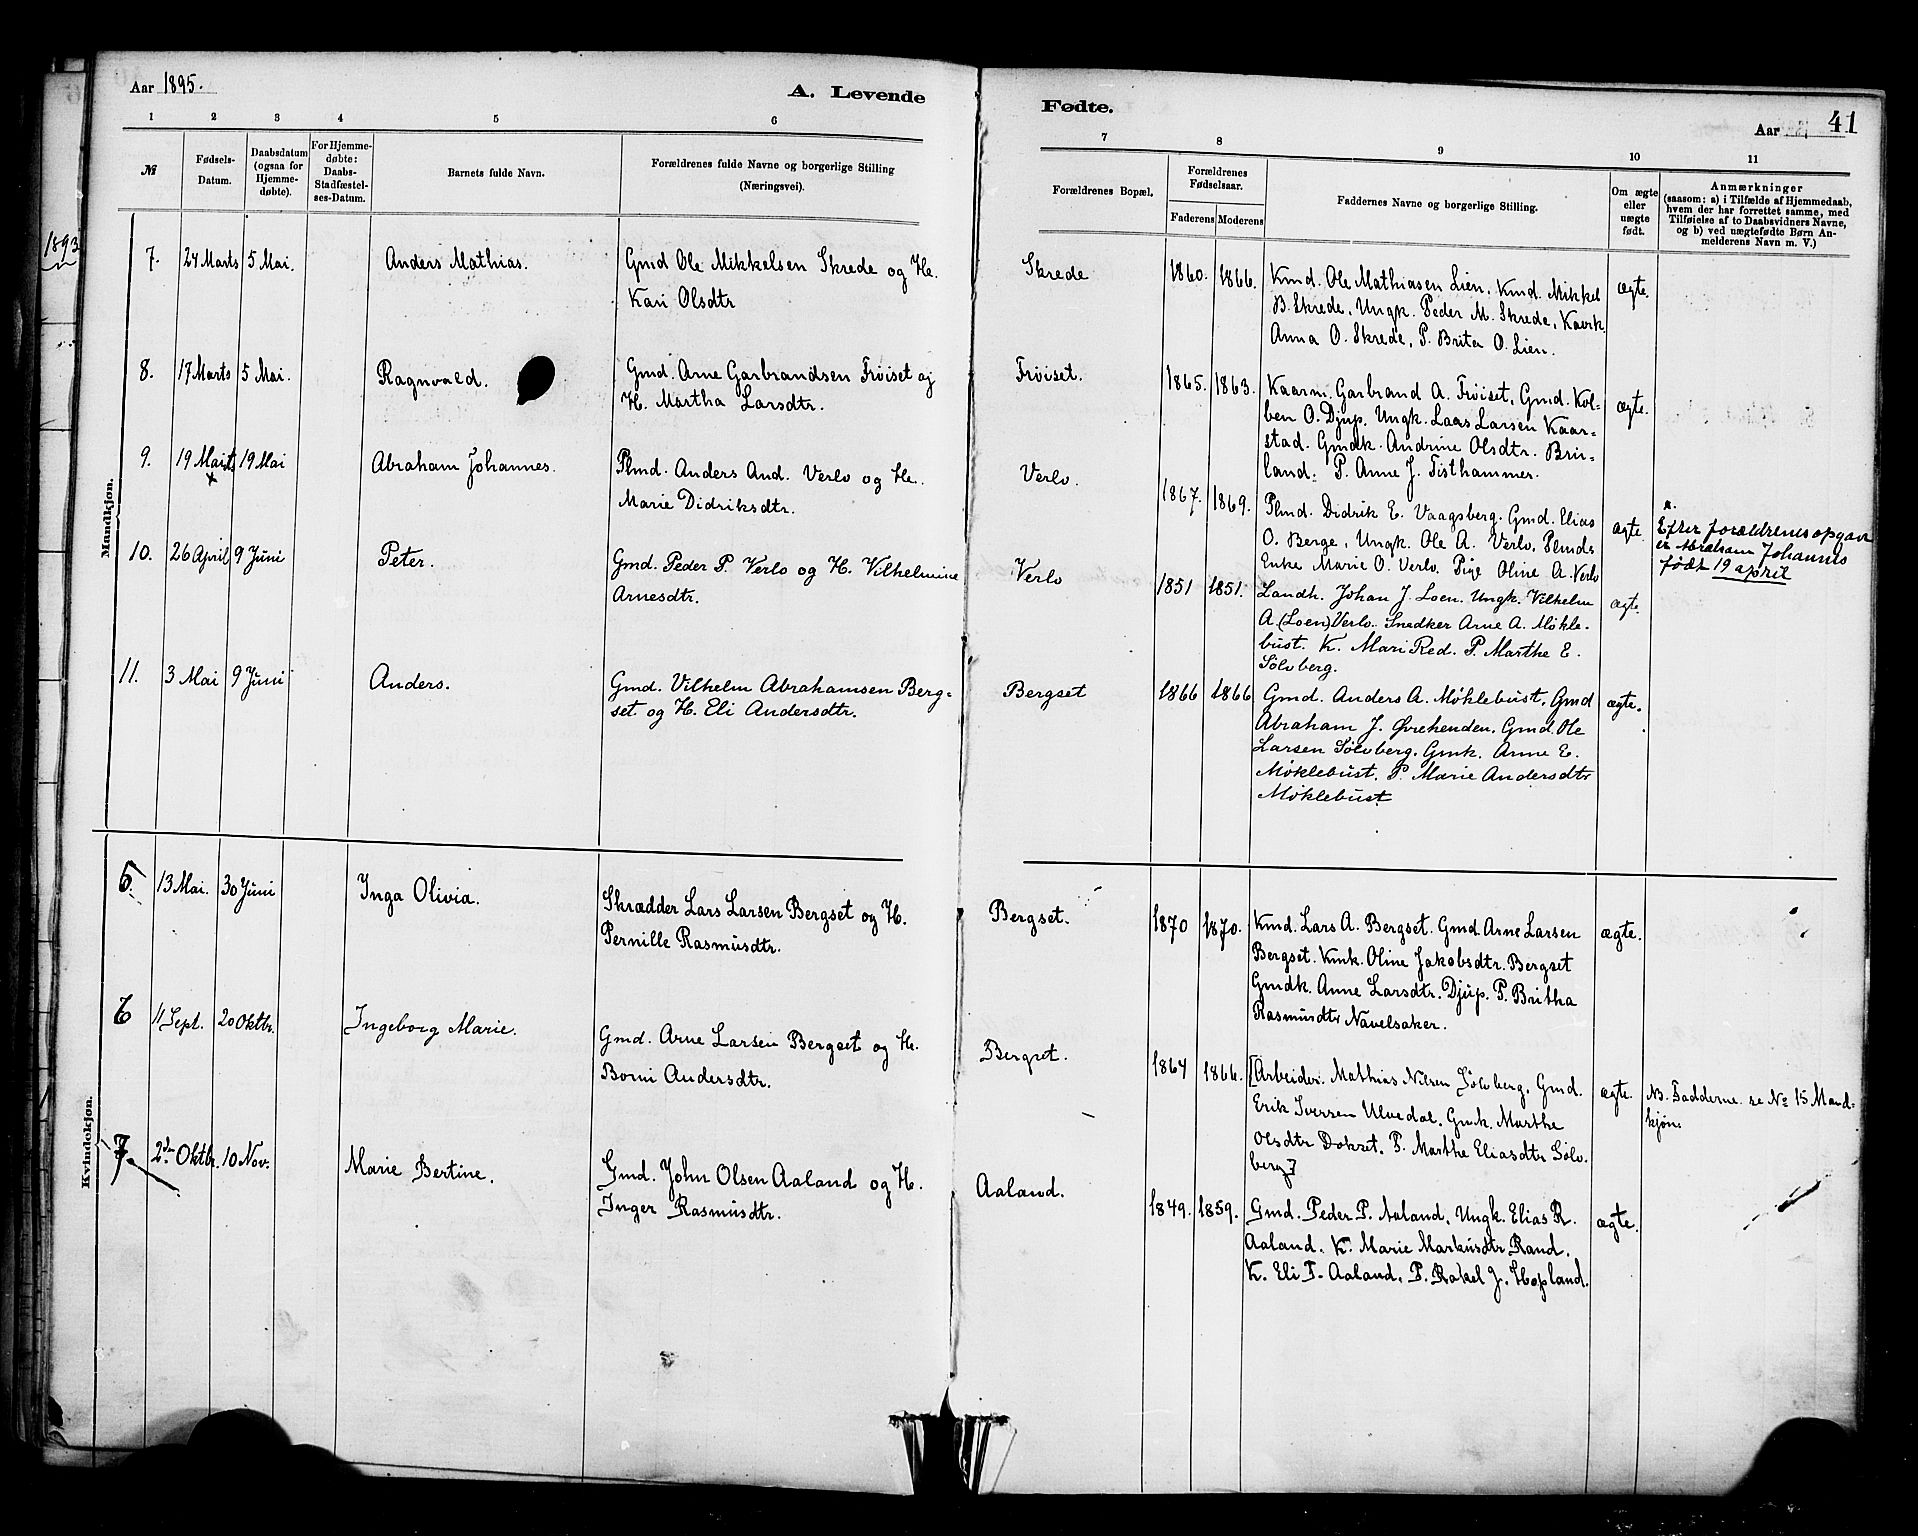 Aar 1895.
A. Levende
Fødte.
Aar
41
1 2 3 4 5 6
7 8 9 10 11
№
Fødsels-
Datum.
Daabsdatum
(ogsaa for
Hjemme-
døbte).
For Hjemme-
døbte:
Daabs-
Stadfæstel-
ses-Datum.
Barnets fulde Navn.
Forældrenes fulde Navne og borgerlige Stilling
(Næringsvei).
Forældrenes Bopæl.
Forældrenes
Fødselsaar.
Faderens Moderens
Faddernes Navne og borgerlige Stilling.
Om ægte
eller
uægte
født.
Anmærkninger
(saasom: a) i Tilfælde af Hjemmedaab,
hvem der har forrettet samme, med
Tilføielse af to Daabsvidners Navne,
og b) ved uægtefødte Børn An-
melderens Navn m. V.)
1893
Mandkjøn.
7. 24 Marts 5 Mai. Anders Mathias. Gmd Ole Mikkelsen Skrede og H.
Kari Olsdtr
Skrede 1860. 1866. Kmd. Ole Mathiasen Lien, Kmd. Mikkel
B. Skrede, Ungk. Peder M. Skrede, Kaark.
Anna O. Skrede, P. Brita O. Lien.
ægte.
8. 17 Marts 5 Mai. Ragnvald. Gmd. Arne Garbrandsen Frøiset og
H. Martha Larsdtr.
Frøiset. 1865. 1863. Kaarm. Garbrand A. Frøiset, Gmd. Kol-
ben O. Djup, Ungk. Laars Larsen Kaar-
stad. Gmdk. Andrine Olsdtr. Brir-
land. P. Anne J. Tisthammer.
ægte.
9. 19 Marts 19 Mai Abraham Johannes. Plmd. Anders And. Verlo og H.
x
Marie Didriksdtr.
Verlo. 1867. 1869. Plmd. Didrik E. Vaagsberg. Gmd. Elias
O. Berge, Ungk. Ole A. Verlo, Plmds
Enke Marie O. Verlo. Pige Oline A. Verlo
ægte
x.
Efter forældrenes opgave
er Abraham Johannes
født 19 april
10. 26 April 9 Juni Peter. Gmd. Peder P. Verlo og H. Vilhelmine
Arnesdtr.
Verlo 1851 1851. Landh. Johan J. Loen. Ungk. Vilhelm
A. (Loen) Verlo. Snedker Arne A. Møkle-
bust. K. Mari Red. P. Marthe E.
Sølvberg.
ægte.
11. 3 Mai 9 Juni Anders. Gmd. Vilhelm Abrahamsen Berg-
set og H. Eli Andersdtr.
Bergset 1866 1866 Gmd. Anders A. Møklebust. Gmd
Abraham J. Øvrehenden. Gmd. Ole
Larsen Sølvberg. Gmk. Anne E.
Møklebust. P. Marie Andersdtr
Møklebust
ægte.
Kvindekjøn.
5. 13 Mai. 30 Juni Inga Olivia. Skrædder Lars Larsen Bergset og H.
Pernille Rasmusdtr.
Bergset. 1870 1870. Kmd. Lars A. Bergset. Gmd. Arne Larsen
Bergset. Kmk. Oline Jakobsdtr. Bergset
Gmdk. Anne Larsdtr. Djup. P. Britha
Rasmusdtr Navelsaker.
ægte.
6 11 Sept. 20 Oktbr. Ingeborg Marie. Gmd. Arne Larsen Bergset og H.
Borni Andersdtr.
Bergset. 1864 1866. [Arbeider. Mathias Nilsen Sølvberg, Gmd.
Erik Iversen Ulvedal, Gmk. Marthe
Olsdtr Dokset. P. Marthe Eliasdtr Sølv-
berg]
ægte.
NB. Fadderne se № 15 Mand-
kjøn.
7. 2den Oktbr. 10 Nov. Marie Bertine. Gmd. John Olsen Aaland og H.
Inger Rasmusdtr.
Aaland. 1849. 1859. Gmd. Peder P. Aaland, Ungk. Elias R.
Aaland. K. Marie Markusdtr Rand.
K. Eli T. Aaland, P. Rakel J. Hopland.
ægte.